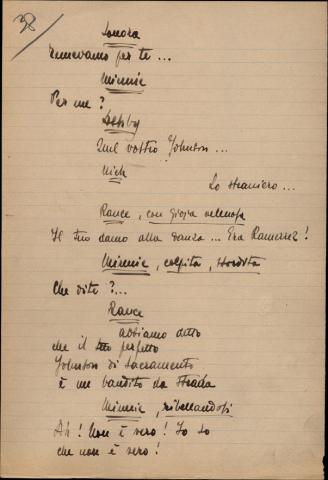 38/
Sonora
Temevamo per te...
Minnie
Per me?
Ashby
Quel vostro Johnson...
Nick
Lo straniero...
Rance, con gioja velenosa
Il tuo damo alla danza... Era Ramerrez!
Minnie, colpita, stordita
Che dite?...
Rance
abbiamo detto
che il tuo perfetto
Johnson di Sacramento
è un bandito da strada
Minnie, ribellandosi
Ah! Non è vero! Io so
che non è vero!